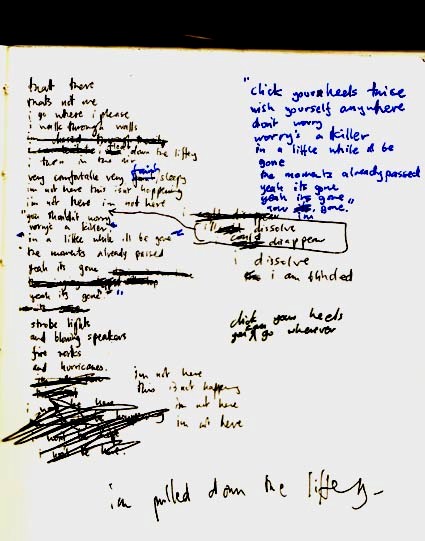 that there
thats not me
i go where i please
i walk through walls
down the liffey
i turn in the air
very comfortable very sleepy
im not here this isnt happening
im not here im not here
"you shouldnt worry
worrys a killer
in a little while ill be gone
the moments already passed
yeah its gone
yeah its gone"
strobe lights
and blowing speakers
fire works
and hurricanes.
im not here
this is not happening
im not here
im not here
"click yours heels twice
wish yourself anywhere
dont worry
worry's a killer
in a little while i'd be
gone
the moments already passed
yeah its gone
yeah its gone"
im gone.
dissolve
could disappear
i dissolve
i am blinded
click your heels
you can go wherever
im pulled down the liffey